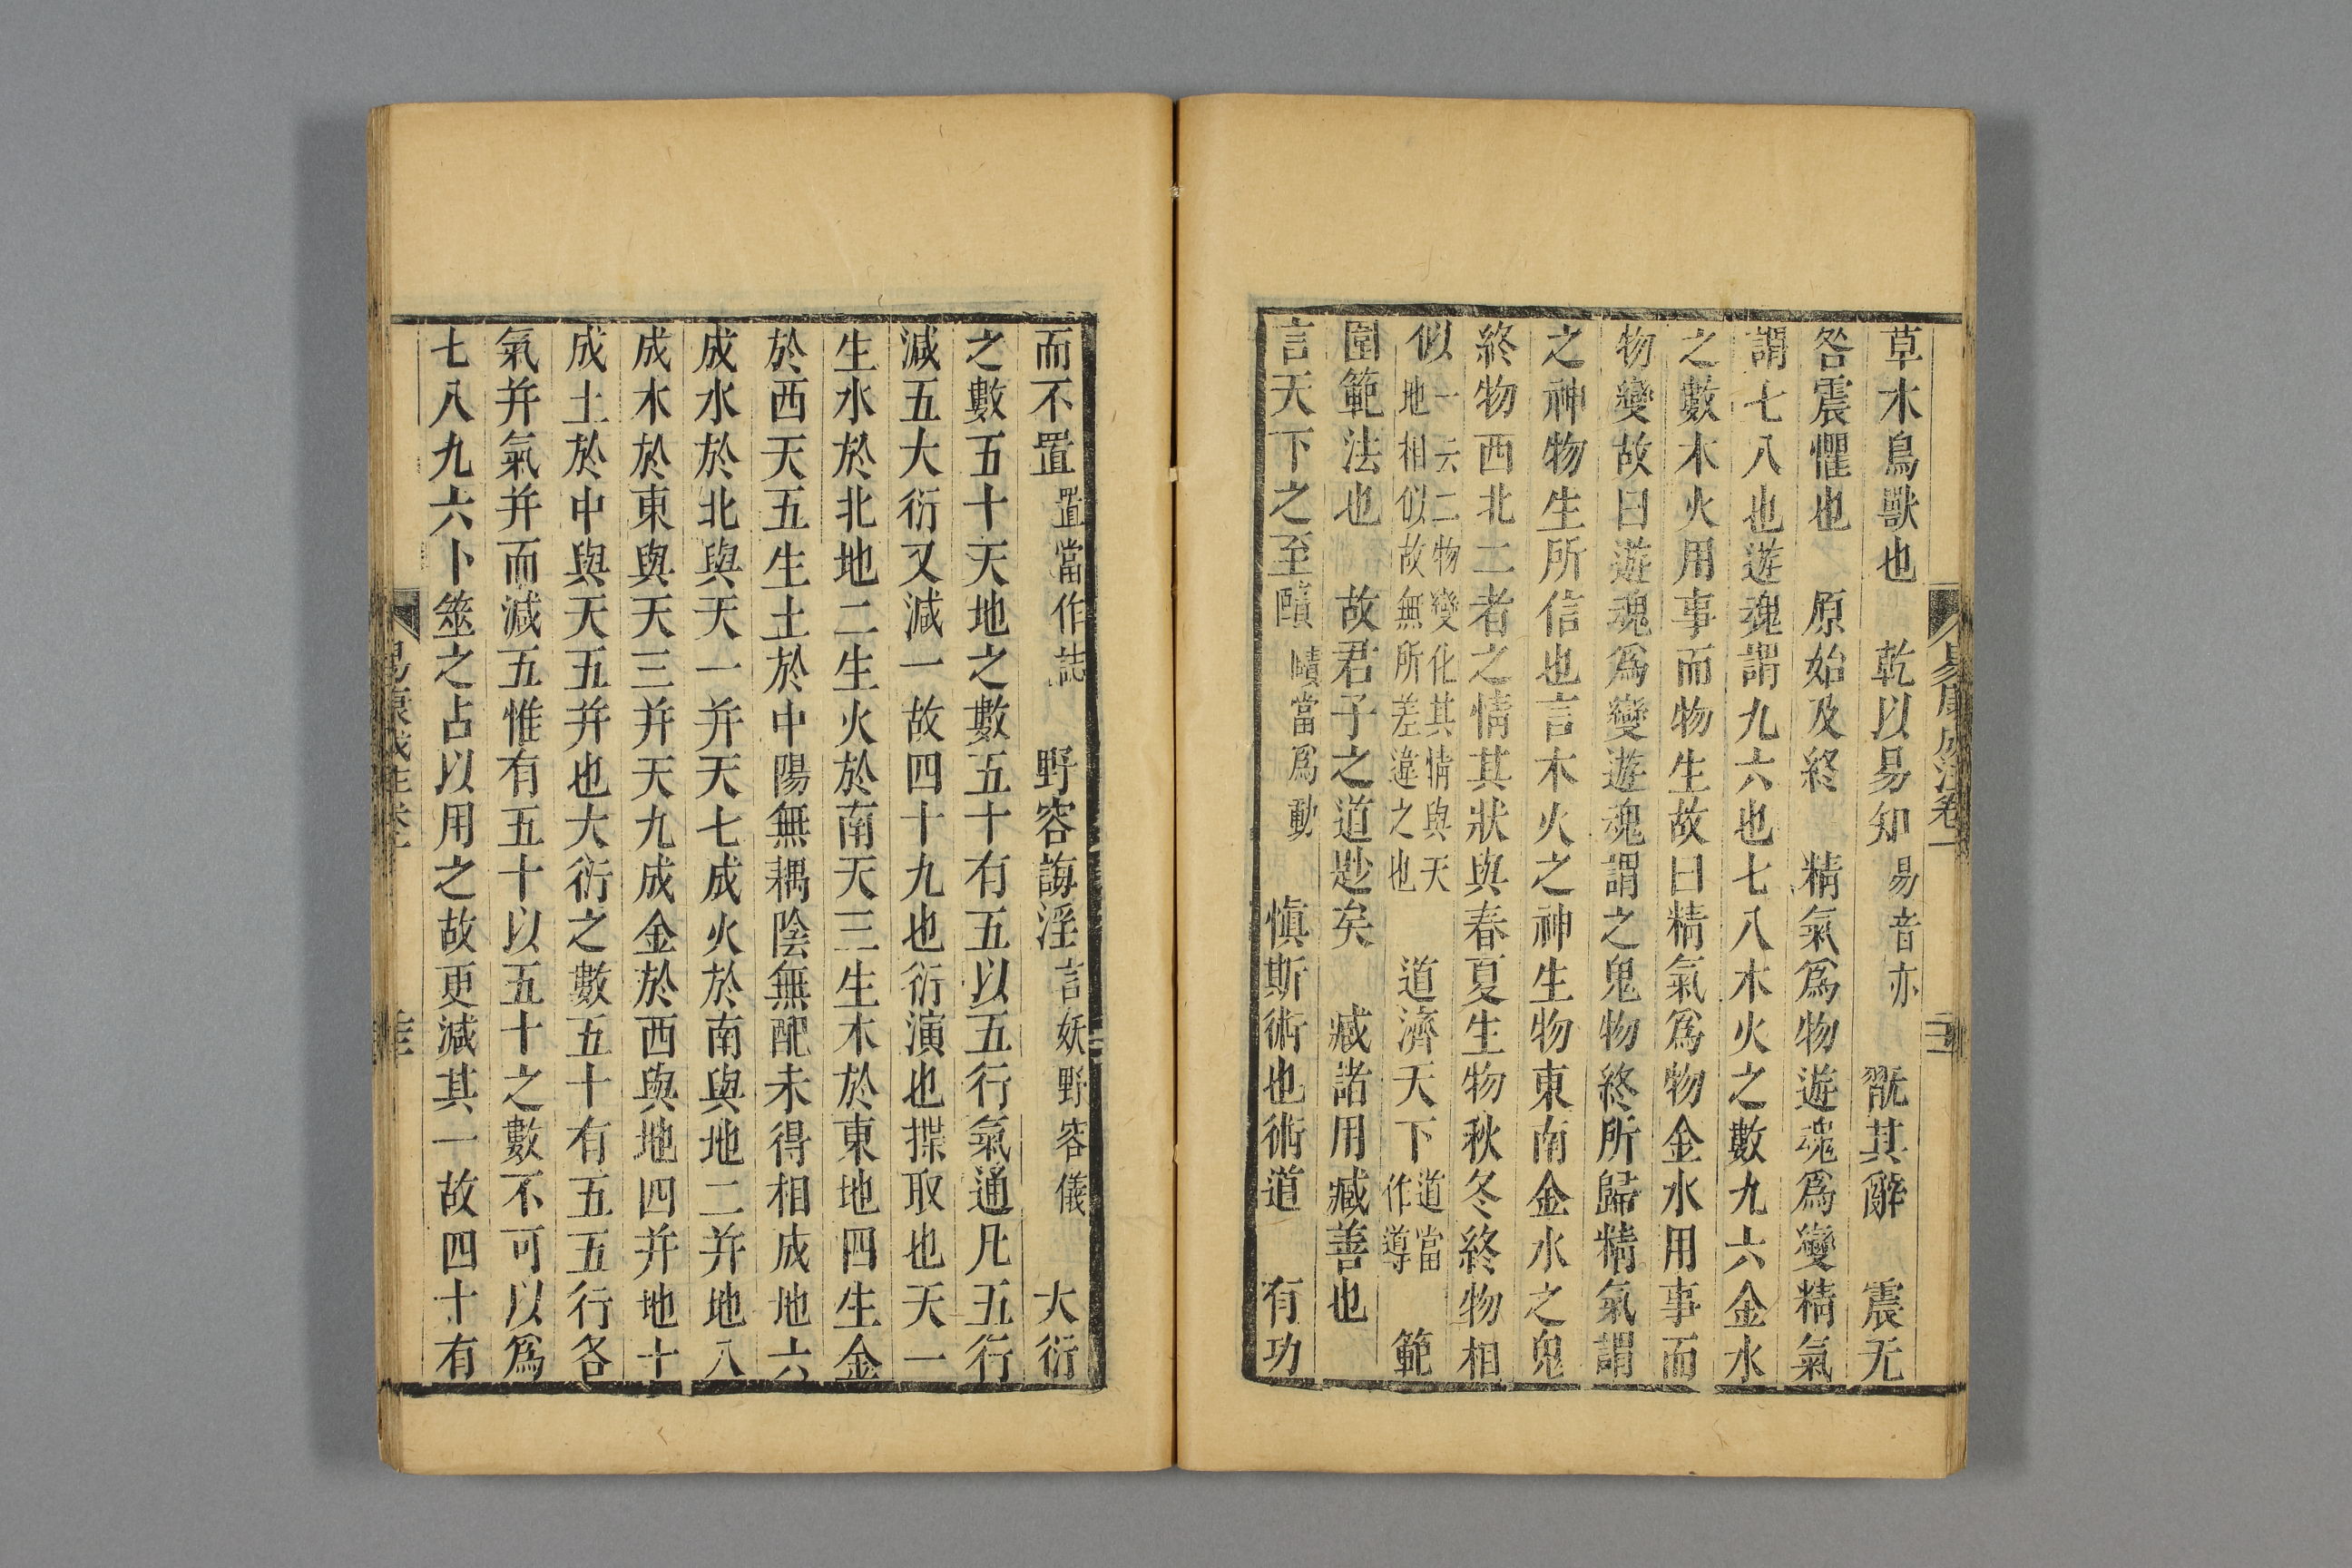 易康成注卷一
草木鳥獸也 乾以易知 易音亦 翫其辭 震无
咎震懼也 原始及終 精氣爲物遊魂爲變精氣
謂七八也遊魂謂九六也七八木火之數九六金水
之數木火用事而物生故曰精氣爲物金水用事而
物變故曰遊魂爲變遊魂謂之鬼物終所歸精氣謂
之神物生所信也言木火之神生物東南金水之鬼
終物西北二者之情其狀與春夏生物秋冬終物相
似 一云二物變化其情與天地相似故無所差違之也 道濟天下 道當作導 範
圍範法也 故君子之道尟矣 臧諸用臧善也
言天下之至賾 賾當爲動 愼斯術也術道 有功
而不置 置當作誌 野容誨淫 言妖野容儀 大衍
之數五十天地之數五十有五以五行氣通凡五行
減五大衍又減一故四十九也衍演也揲取也天一
生水於北地二生火於南天三生木於東地四生金
於西天五生土於中陽無耦陰無配未得相成地六
成水於北與天一并天七成火於南與地二并地八
成木於東與天三并天九成金於西與地四并地十
成土於中與天五并也大衍之數五十有五五行各
氣并氣并而減五惟有五十以五十之數不可以爲
七八九六卜筮之占以用之故更減其一故四十有
易康成注卷一